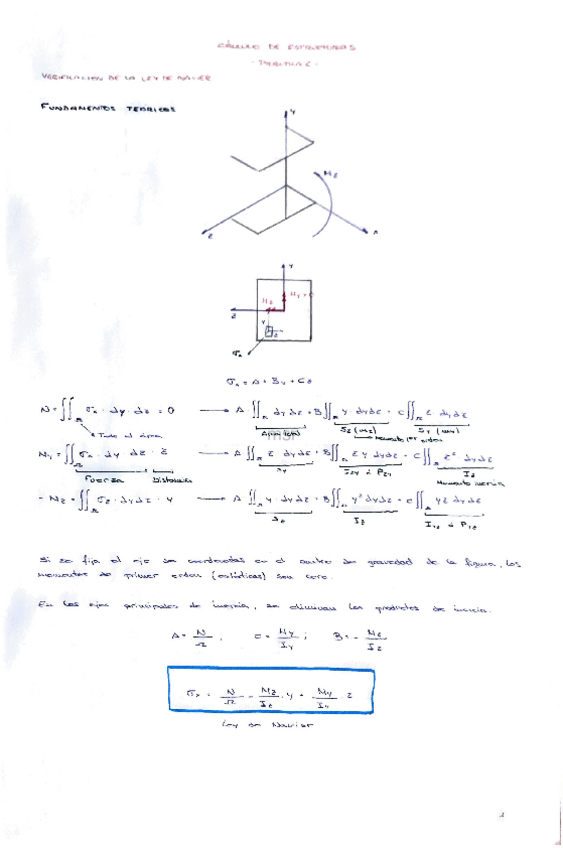 CÁLCULO DE ESTRUCTURAS
VERIFICACION DE LA LEY DE NAVIER
FUNDAMENTOS TEORICOS
Y
Mz
Z
X
Y
Mz
My
Z
Y
σx
σx = A + By + Cz
N = ∬Ω σx · dy · dz = 0 → A ∬Ω dy dz + B ∬Ω y dy dz + C ∬Ω z dy dz
Todo el área
Área total
My = ∬Ω σx · dy dz · z → A ∬Ω z dy dz + B ∬Ω zy dy dz + C ∬Ω z² dy dz
Fuerza Distancia
Iy
Momento inercia
- Mz = ∬Ω σx · dy dz · y → A ∬Ω y dy dz + B ∬Ω y² dy dz + C ∬Ω yz dy dz
Iz
Si se fija el eje de coordenadas en el centro de gravedad de la figura, los
momentos de primer orden (estáticos) son cero.
En los ejes principales de inercia, se eliminan los productos de inercia.
A = N/Ω , C = My/Iy ; B = - Mz/Iz
σx = N/Ω - Mz/Iz · y + My/Iy · z
Ley de Navier
1